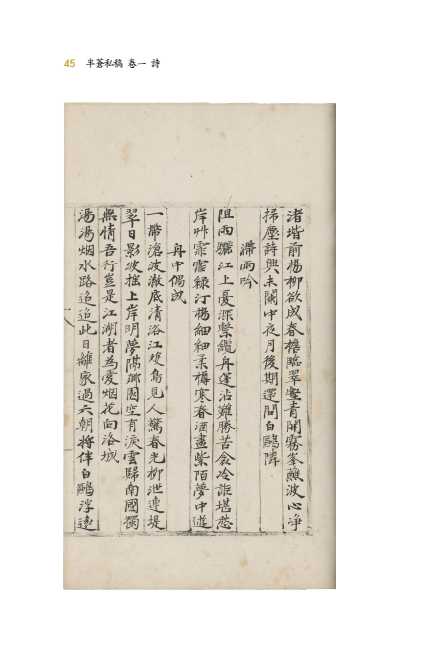 45 半蒼私稿 卷一 詩
渚堦前楊柳欲成春檣臨翠壑青開霧峯蘸波心淨
掃塵詩興未闌中夜月後期還問白鷗隣
滯雨吟
阻雨驪江上憂深繫纜舟蓬沾難勝苦衾冷詎堪愁
岸艸霏霏綠汀楊細細柔樽寒春酒盡紫陌夢中遊
舟中偶成
一帶滄波澈底清浴江雙鳥見人驚春光柳泄連堤
翠日影波搖上岸明夢隔鄉園空有淚雲歸南國獨
無情吾行豈是江湖者為愛烟花向洛城
湯湯烟水路迢迢此日離家過六朝將伴白鷗浮遠